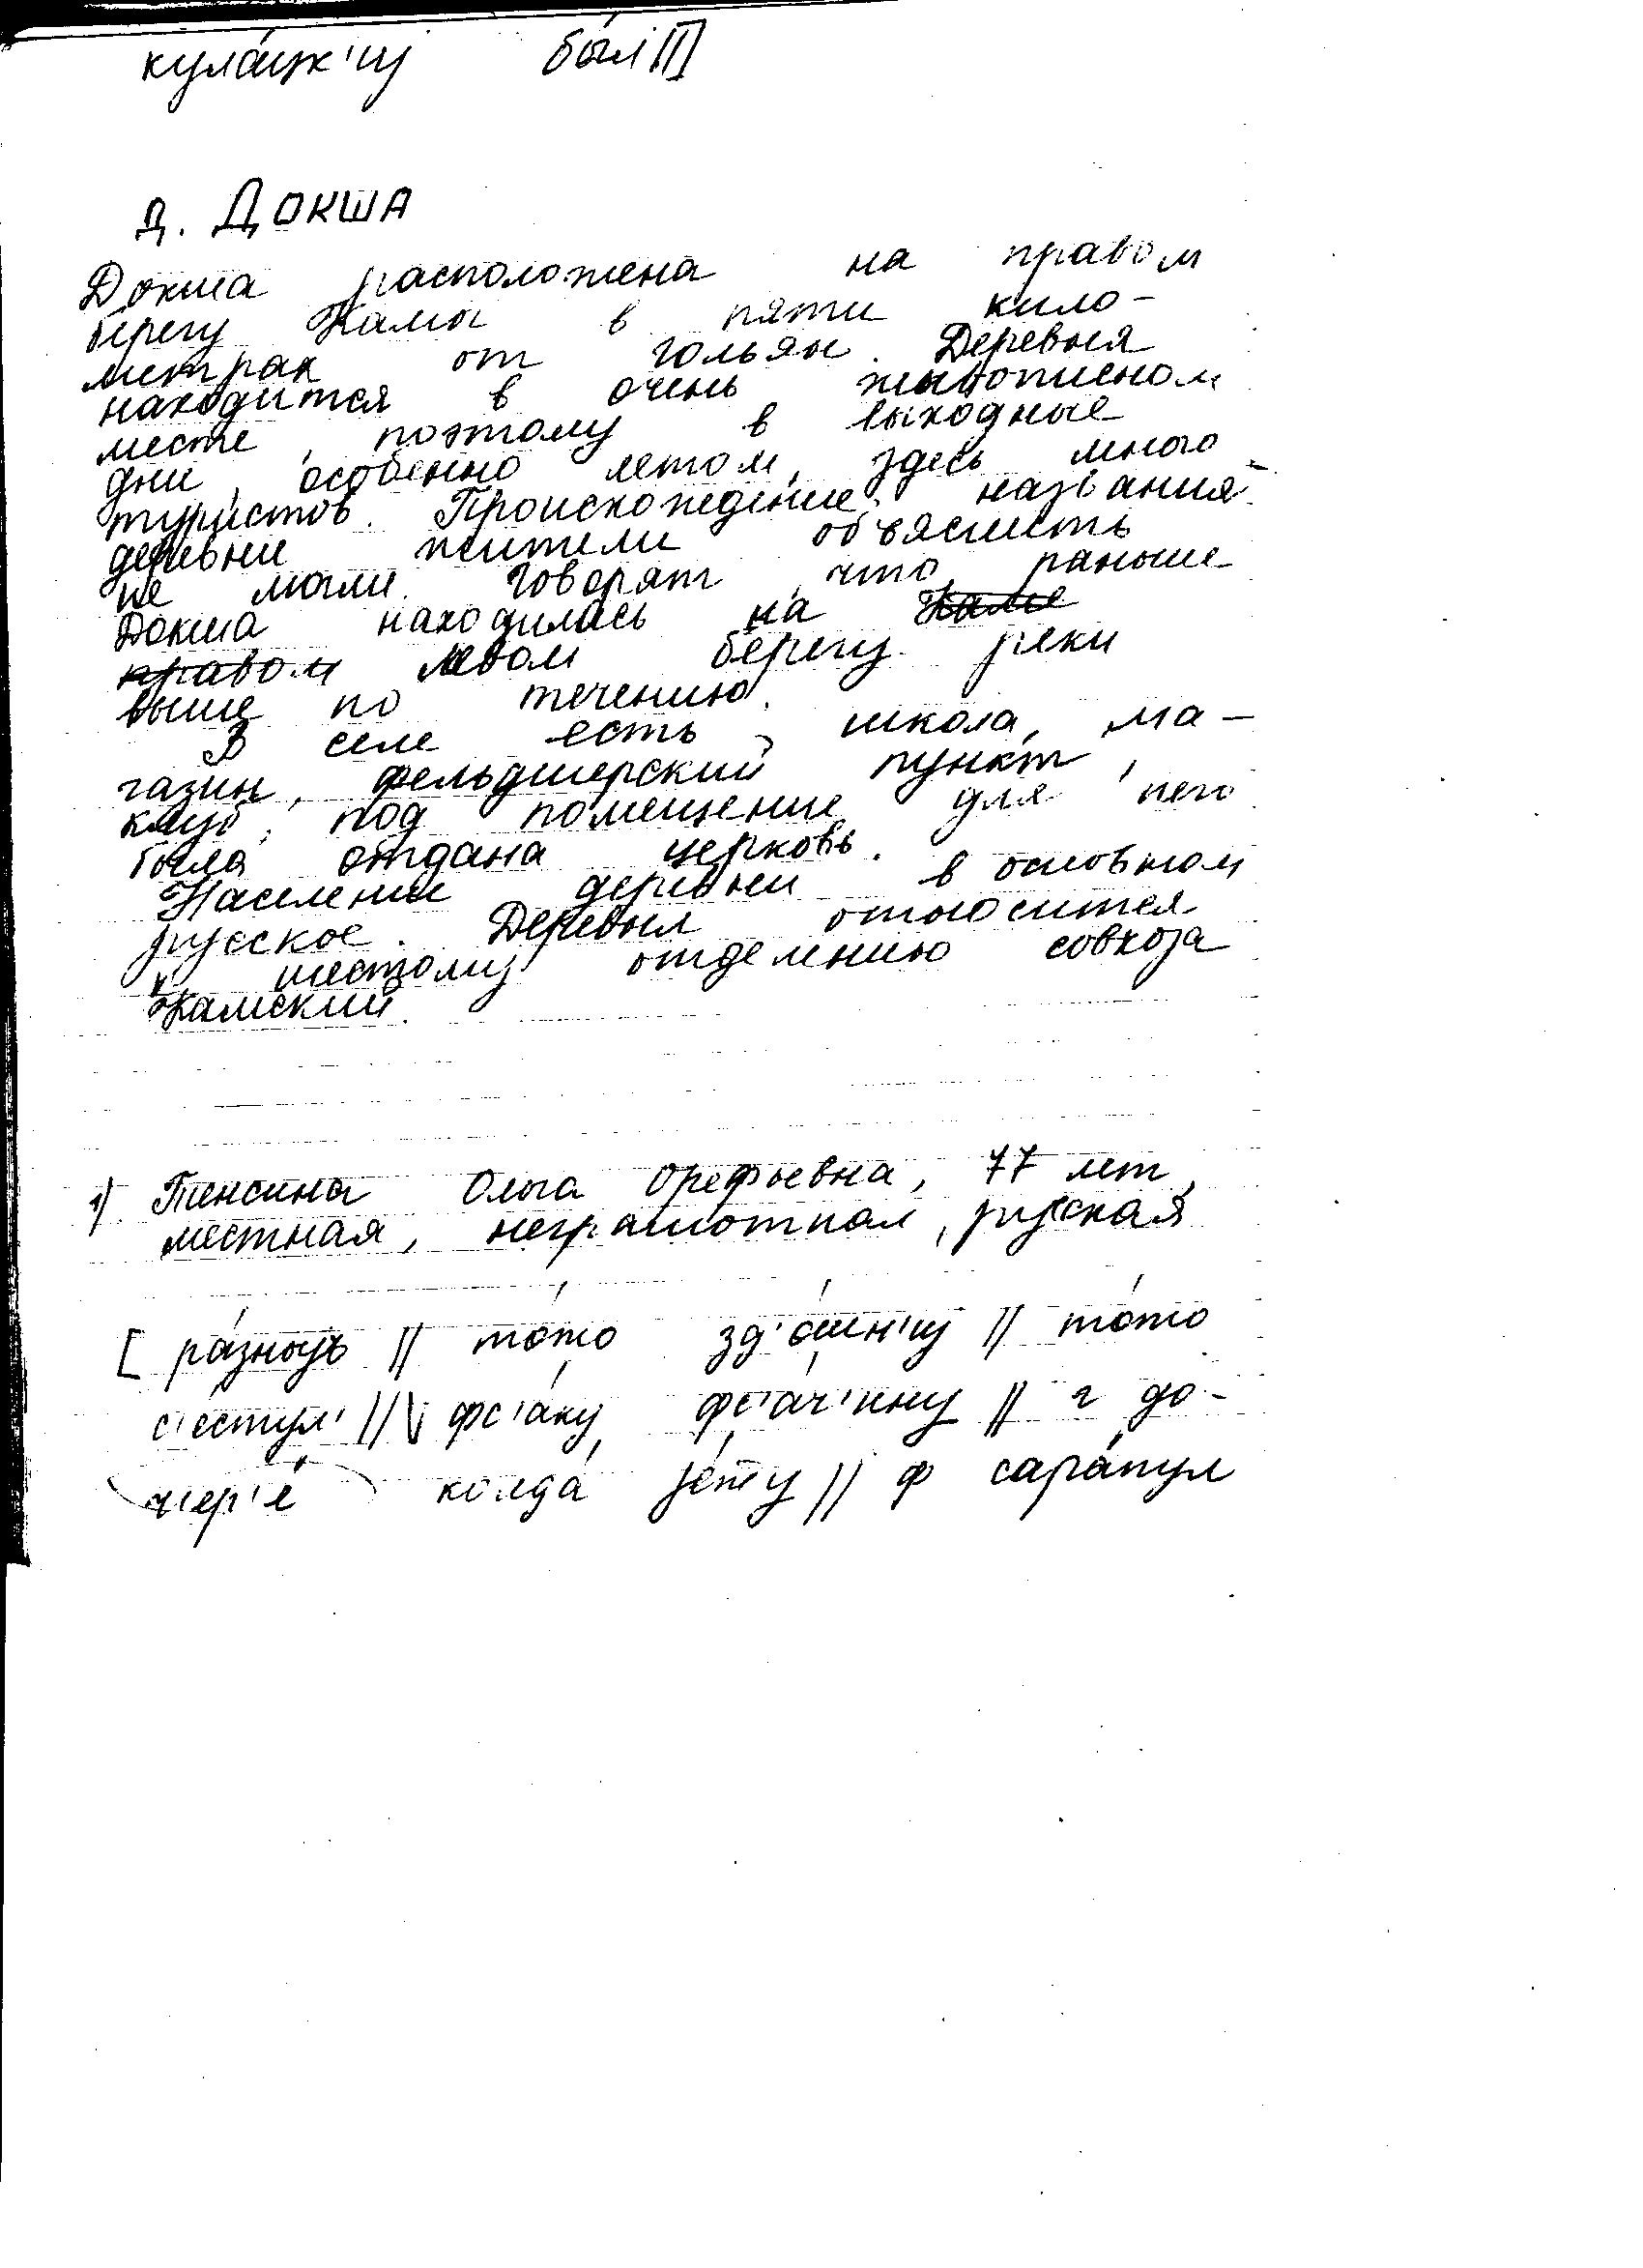 бы́л||]
д. ДОКША
Докша расположена на правом
берегу Камы в пяти кило-
метрах от Гольян. Деревня
находится в очень живописном
месте, поэтому в выходные
дни, особенно летом, здесь много
туристов. Происхождение названия
деревни жители объяснить
не могли. Говорят, что раньше
Докша находилась на Каме
правом левом берегу реки
выше по течению.
В селе есть школа, ма-
газин, фельдшерский пункт,
клуб, под помещение для него
была отдана церковь.
Население деревни в основном
русское. Деревня относится
к шестому отделению совхоза
Камский.
1) Тенсина Ольга Орефьевна, 77 лет,
местная, неграмотная, русская
[ то́то || то́то
|| г до-
колда́ || ф сара́пул